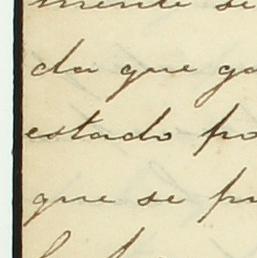 mente se
da que ga
estado po
que se pu